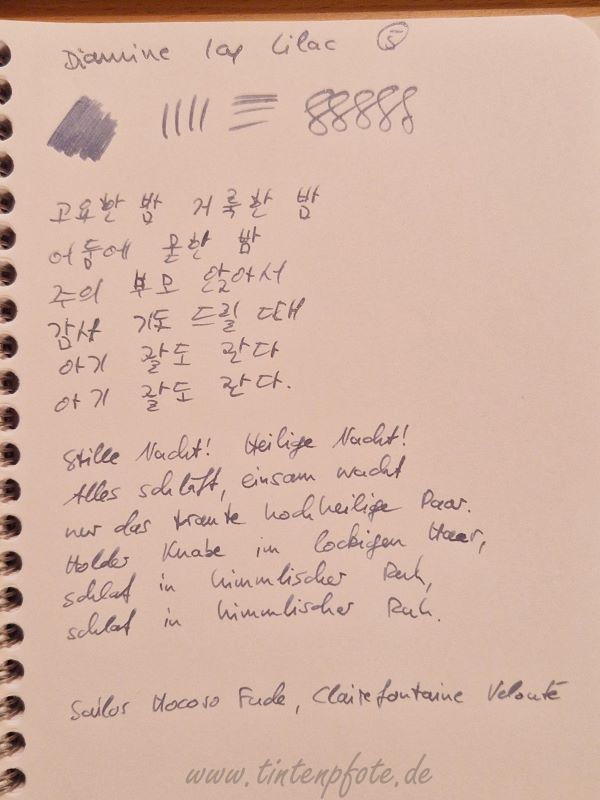 Diamine Icy Lilac 5
고요한 밤 거룩한 밤
어둠에 밤
주의 부모 앉아서
감사 기도 드릴 때
아기 잘도 잔다
아기 잘도 잔다.
Stille Nacht! Heilige Nacht!
Alles schläft, einsam wacht
nur das traute hochheilige Paar.
Holder Knabe im lockigen Haar,
schlaf in himmlischer Ruh,
schlaf in himmlischer Ruh.
Sailor Hocoro Fude, Clairefontaine Velouté
www.tintenpfote.de